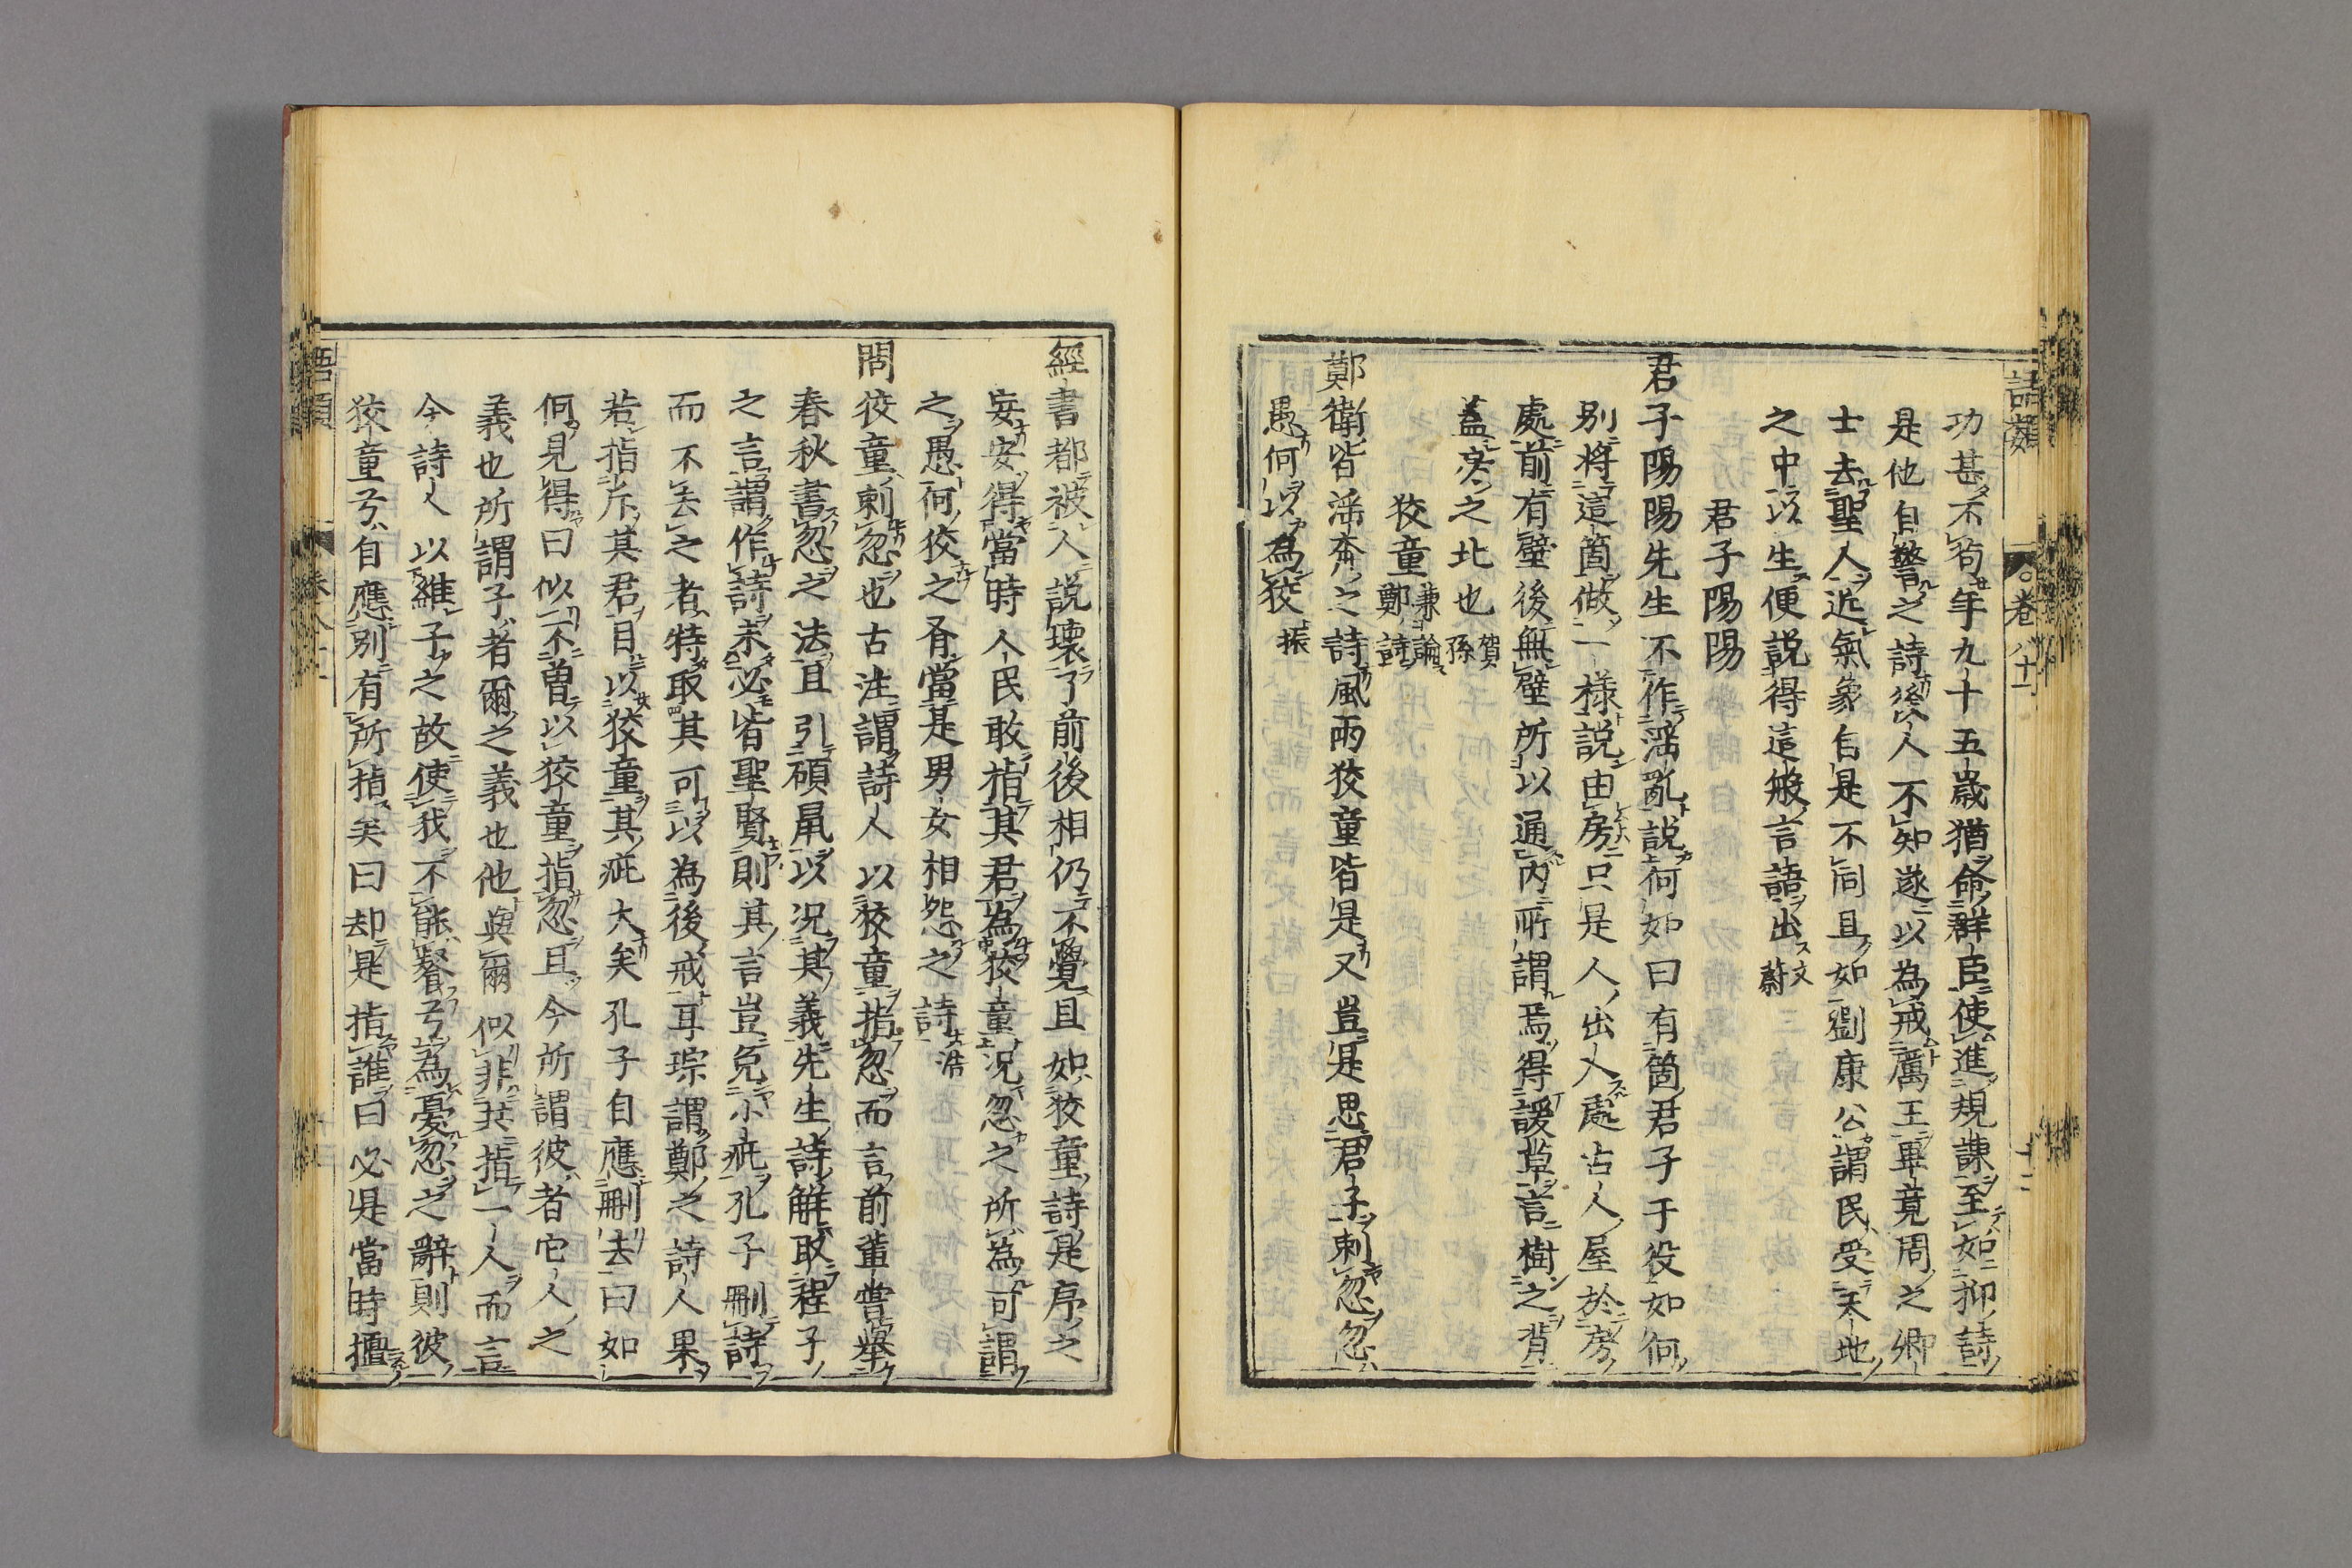 語類
卷八十一
十二
功甚不苟年九十五歲猶命群臣使進規諫至如抑詩
是他自警之詩後人不知遂以為戒厲王畢竟周之卿
士去聖人近氣象自是不同且如劉康公謂民受天地
之中以生便説得這般言語出文蔚
君子陽陽
君子陽陽先生不作淫亂説何如曰有箇君子于役如何
別將這箇做一樣説由房只是人出入處古人屋於房
處前有壁後無壁所以通内所謂焉得諼草言樹之背
蓋房之北也賀孫
狡童兼論鄭詩
鄭衛皆淫奔之詩風雨狡童皆是又豈是思君子刺忽忽
愚何以為狡振
經書都被人説壞了前後相仍不覺且如狡童詩是序之
妄安得當時人民敢指其君為狡童况忽之所為可謂
之愚何狡之有當是男女相怨之詩浩
問狡童刺忽也古注謂詩人以狡童指忽而言前輩嘗舉
春秋書忽之法且引碩鼠以况其義先生詩解取程子
之言謂作詩未必皆聖賢則其言豈免小疵孔子刪詩
而不去之者特取其可以為後戒耳琮謂鄭之詩人果
若指斥其君目以狡童其疵大矣孔子自應刪去曰如
何見得曰似不曽以狡童指忽且今所謂彼者它人之
義也所謂子者爾之義也他與爾似非共指一人而言
今詩人以維子之故使我不能餐兮為憂忽之辭則彼
狡童兮自應別有所指矣曰却是指誰曰必是當時擅
語類
卷八十一